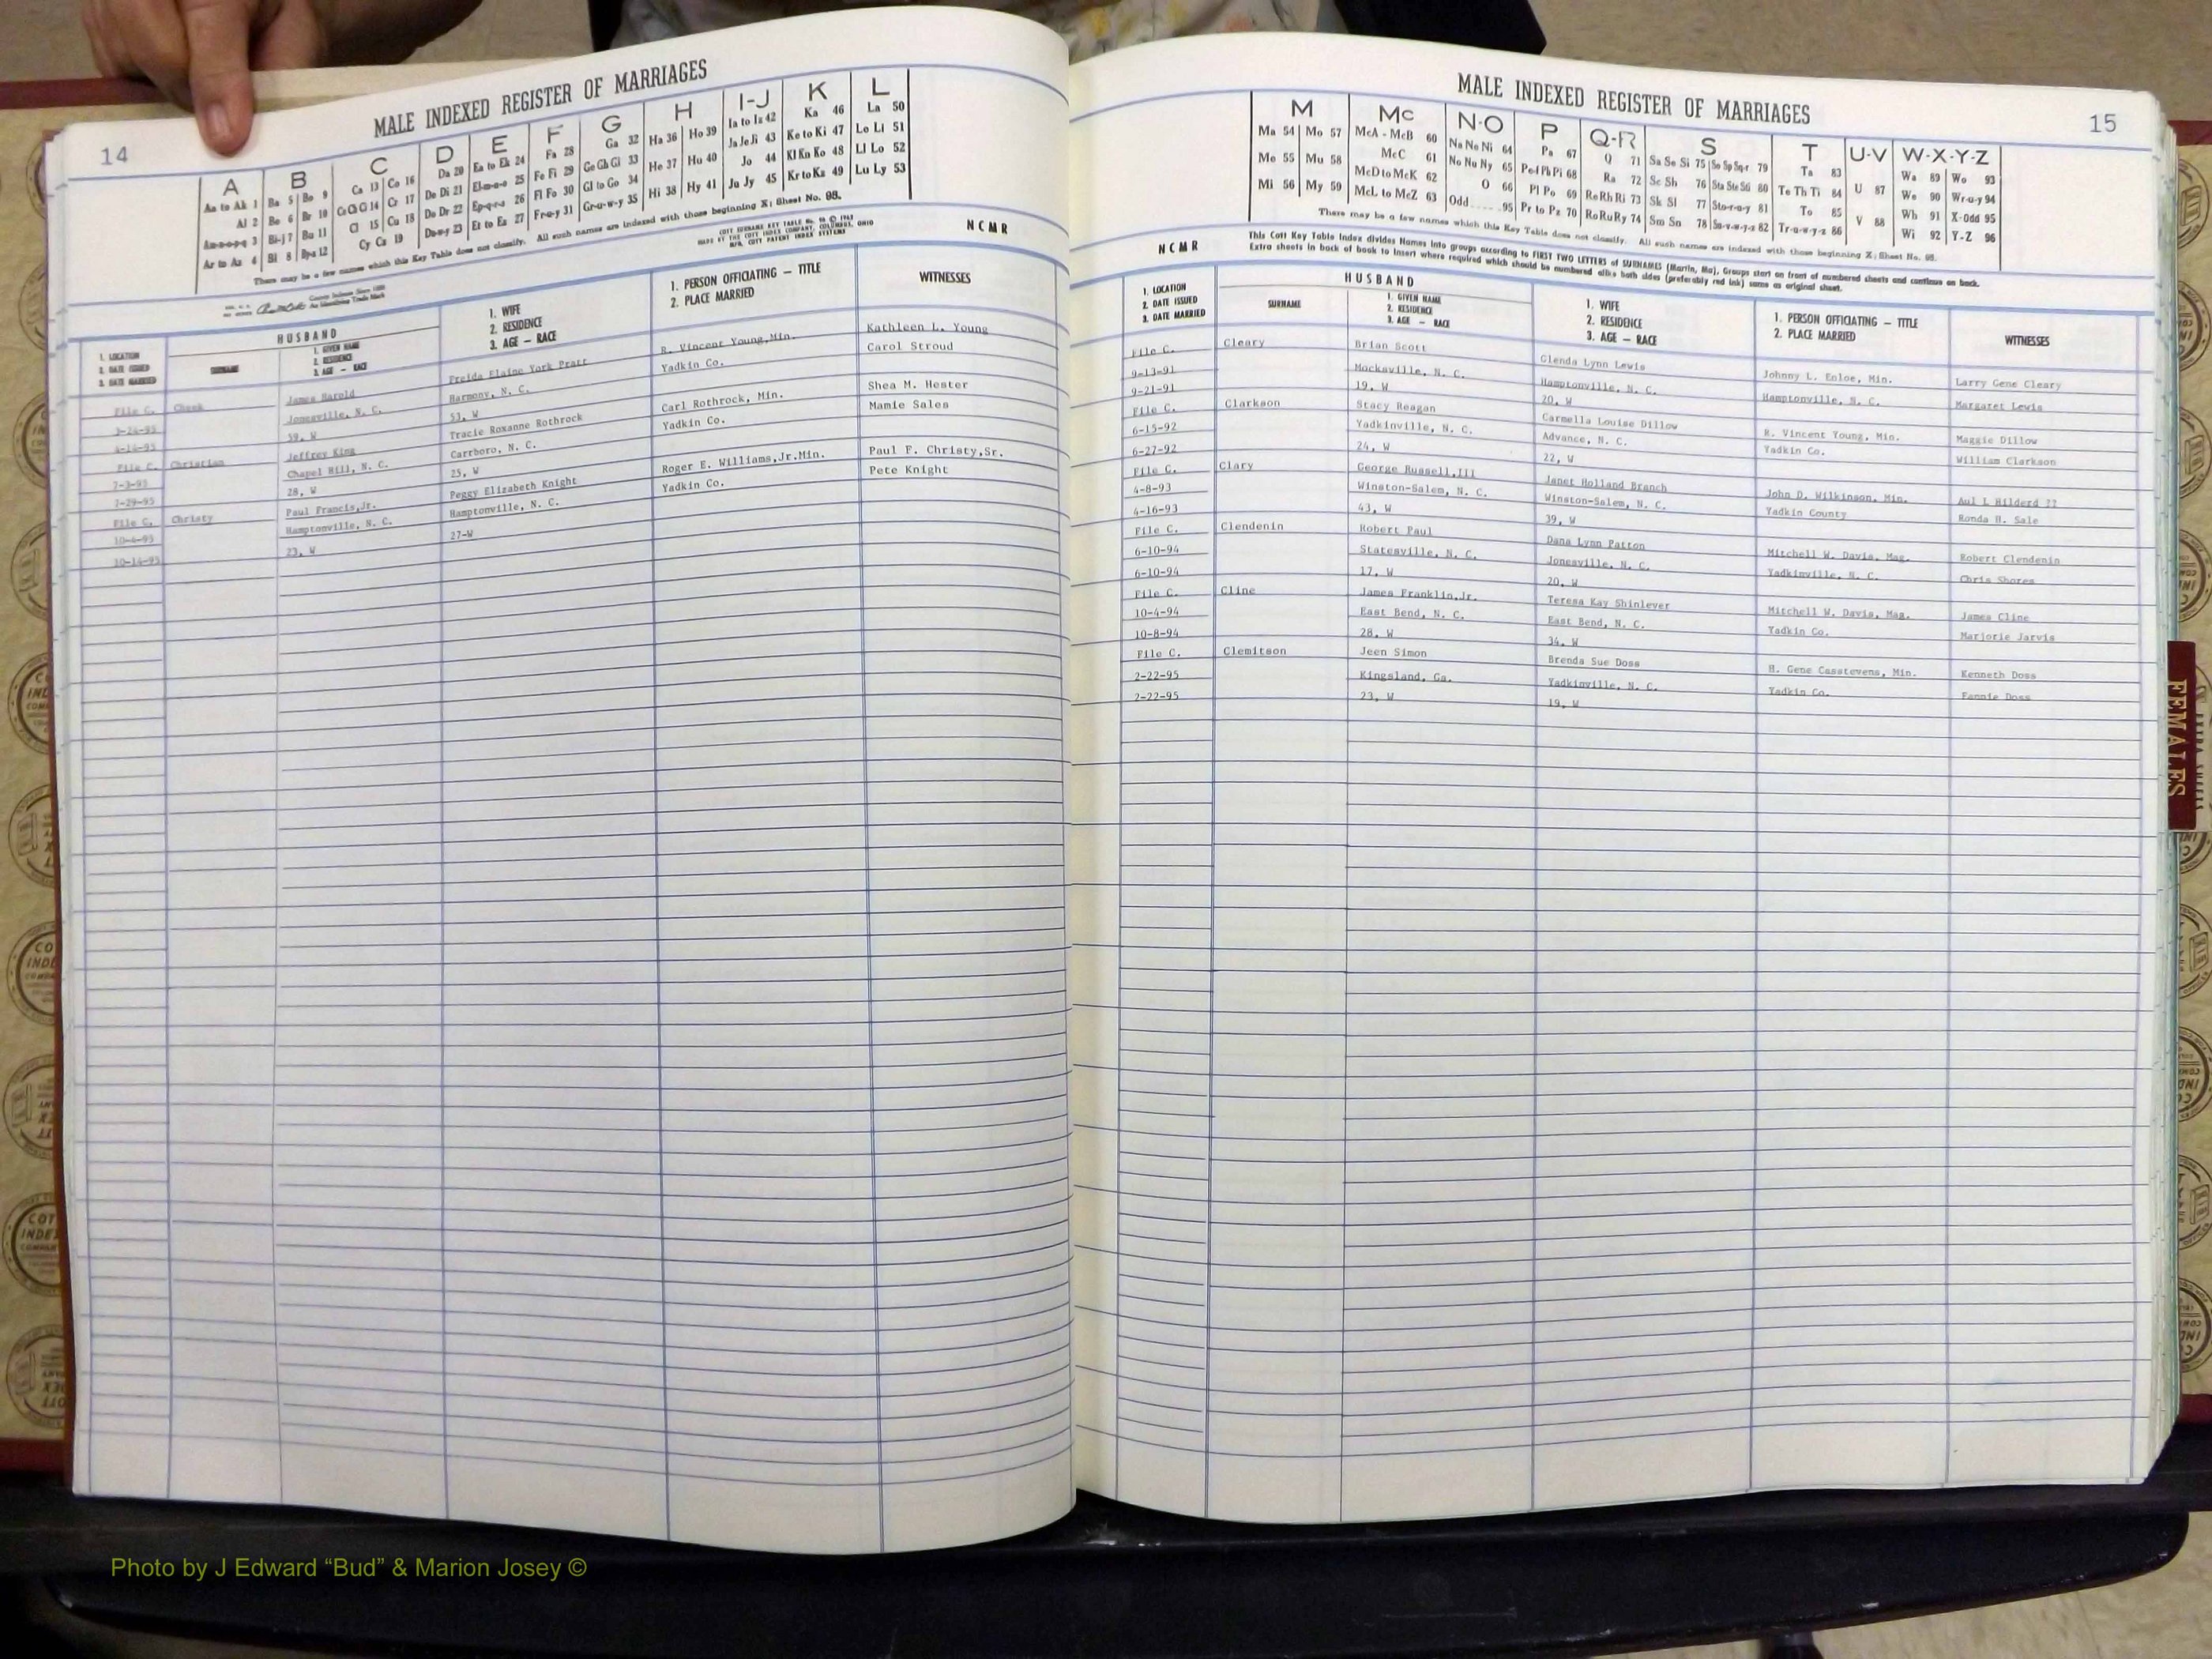 14
MALE INDEXED REGISTER OF MARRIAGES
A B C D E F G H I-J K L
Aa to Ak 1 Ba 5 Bo 9 Ca 13 Co 16 Da 20 Ea to Ek 24 Fa 28 Ga 32 Ha 36 Ho 39 Ia to Iz 42 Ka 46 La 50
Al 2 Be 6 Br 10 Ce Ch Ci 14 Cr 17 De Di 21 El-m-n-o 25 Fe Fi 29 Ge Gh Gi 33 He 37 Hu 40 Ja Je Ji 43 Ke to Ki 47 Le Li 51
Am-n-o-p-q 3 Bi-j 7 Bu 11 Cl 15 Cu 18 Do Dr 22 Ep-q-r-s 26 Fl Fo 30 Gl to Go 34 Hi 38 Hy 41 Jo 44 Kl Kn Ko 48 Ll Lo 52
Ar to Az 4 Bl 8 Bp-z 12 Cy Cz 19 Du-w-y 23 Et to Ez 27 Fr-u-y 31 Gr-u-w-y 35 Ju Jy 45 Kr to Kz 49 Lu Ly 53
There may be a few names which this Key Table does not classify. All such names are indexed with those beginning X; Sheet No. 98.
COTT SURNAME KEY TABLE
MADE BY THE COTT INDEX COMPANY, COLUMBUS, OHIO
NCMR
HUSBAND
1. LOCATION
2. DATE ISSUED
3. DATE MARRIED
SURNAME
1. GIVEN NAME
2. RESIDENCE
3. AGE — RACE
1. WIFE
2. RESIDENCE
3. AGE — RACE
1. PERSON OFFICIATING — TITLE
2. PLACE MARRIED
WITNESSES
File C. Cheek James Harold Freida Elaine York Pratt R. Vincent Young,Min. Kathleen L. Young
3-24-95 Jonesville, N. C. Harmony, N. C. Yadkin Co. Carol Stroud
59, W 53, W
File C. Christian Jeffrey King Tracie Roxanne Rothrock Carl Rothrock, Min. Shea M. Hester
7-3-95 Chapel Hill, N. C. Carrboro, N. C. Yadkin Co. Mamie Sales
7-29-95 28, W 25, W
File C. Christy Paul Francis,Jr. Peggy Elizabeth Knight Roger E. Williams,Jr.Min. Paul F. Christy,Sr.
10-4-95 Hamptonville, N. C. Hamptonville, N. C. Yadkin Co. Pete Knight
10-14-95 23, W 27-W
15
MALE INDEXED REGISTER OF MARRIAGES
M Mc N-O P Q-R S T U-V W-X-Y-Z
Ma 54 Mo 57 McA - McB 60 Na Ne Ni 64 Pa 67 Q 71 Sa Se Si 75 So Sp Sq-r 79 Ta 83 Wa 89 Wo 93
Me 55 Mu 58 McC 61 No Nu Ny 65 Pe-f Ph Pi 68 Ra 72 Sc Sh 76 Sta Ste Sti 80 Te Th Ti 84 U 87 We 90 Wr-u-y 94
Mi 56 My 59 McD to McK 62 O 66 Pl Po 69 Re Rh Ri 73 Sk Sl 77 Sto-r-u-y 81 To 85 V 88 Wh 91 X-Odd 95
McL to McZ 63 Odd 95 Pr to Pz 70 Ro Ru Ry 74 Sm Sn 78 Su-v-w-y-z 82 Tr-u-w-y-z 86 Wi 92 Y-Z 96
There may be a few names which this Key Table does not classify. All such names are indexed with those beginning X; Sheet No. 98.
NCMR
This Cott Key Table Index divides Names into groups according to FIRST TWO LETTERS of SURNAMES (Martin, Ma). Groups start on front of numbered sheets and continue on back.
Extra sheets in back of book to insert where required which should be numbered alike both sides (preferably red ink) same as original sheet.
HUSBAND
1. LOCATION
2. DATE ISSUED
3. DATE MARRIED
SURNAME
1. GIVEN NAME
2. RESIDENCE
3. AGE — RACE
1. WIFE
2. RESIDENCE
3. AGE — RACE
1. PERSON OFFICIATING — TITLE
2. PLACE MARRIED
WITNESSES
File C. Cleary Brian Scott Glenda Lynn Lewis Johnny L. Enloe, Min. Larry Gene Cleary
9-13-91 Mocksville, N. C. Hamptonville, N. C. Hamptonville, N. C. Margaret Lewis
9-21-91 19, W 20, W
File C. Clarkson Stacy Reagan Carmella Louise Dillow R. Vincent Young, Min. Maggie Dillow
6-15-92 Yadkinville, N. C. Advance, N. C. Yadkin Co. William Clarkson
6-27-92 24, W 22, W
File C. Clary George Russell,III Janet Holland Branch John D. Wilkinson, Min. Aul L Hilderd ??
4-8-93 Winston-Salem, N. C. Winston-Salem, N. C. Yadkin County Ronda H. Sale
4-16-93 43, W 39, W
File C. Clendenin Robert Paul Dana Lynn Patton Mitchell W. Davis, Mag. Robert Clendenin
6-10-94 Statesville, N. C. Jonesville, N. C. Yadkinville, N. C. Chris Shores
6-10-94 17, W 20, W
File C. Cline James Franklin,Jr. Teresa Kay Shinlever Mitchell W. Davis, Mag. James Cline
10-4-94 East Bend, N. C. East Bend, N. C. Yadkin Co. Marjorie Jarvis
10-8-94 28, W 34, W
File C. Clemitson Jeen Simon Brenda Sue Doss H. Gene Casstevens, Min. Kenneth Doss
2-22-95 Kingsland, Ga. Yadkinville, N. C. Yadkin Co. Fannie Doss
2-22-95 23, W 19, W
FEMALES
Photo by J Edward “Bud” & Marion Josey ©